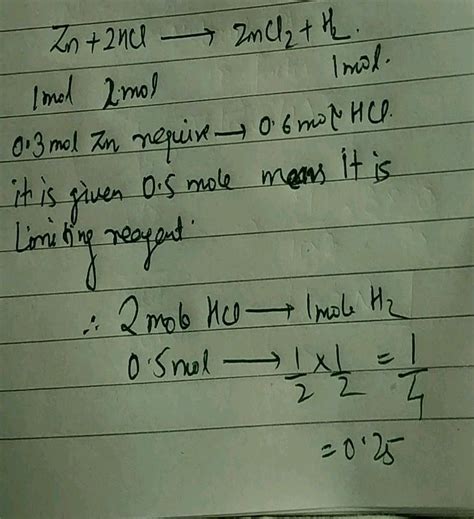 Zn + 2HCl → ZnCl₂ + H₂.
1mol 2mol 1mol.
0.3mol Zn require → 0.6mole HCl.
it is given 0.5 mole means it is
Limiting reagent.
∴ 2 mole HCl → 1mole H₂
0.5mol → 1/2 × 1/2 = 1/4
= 0.25